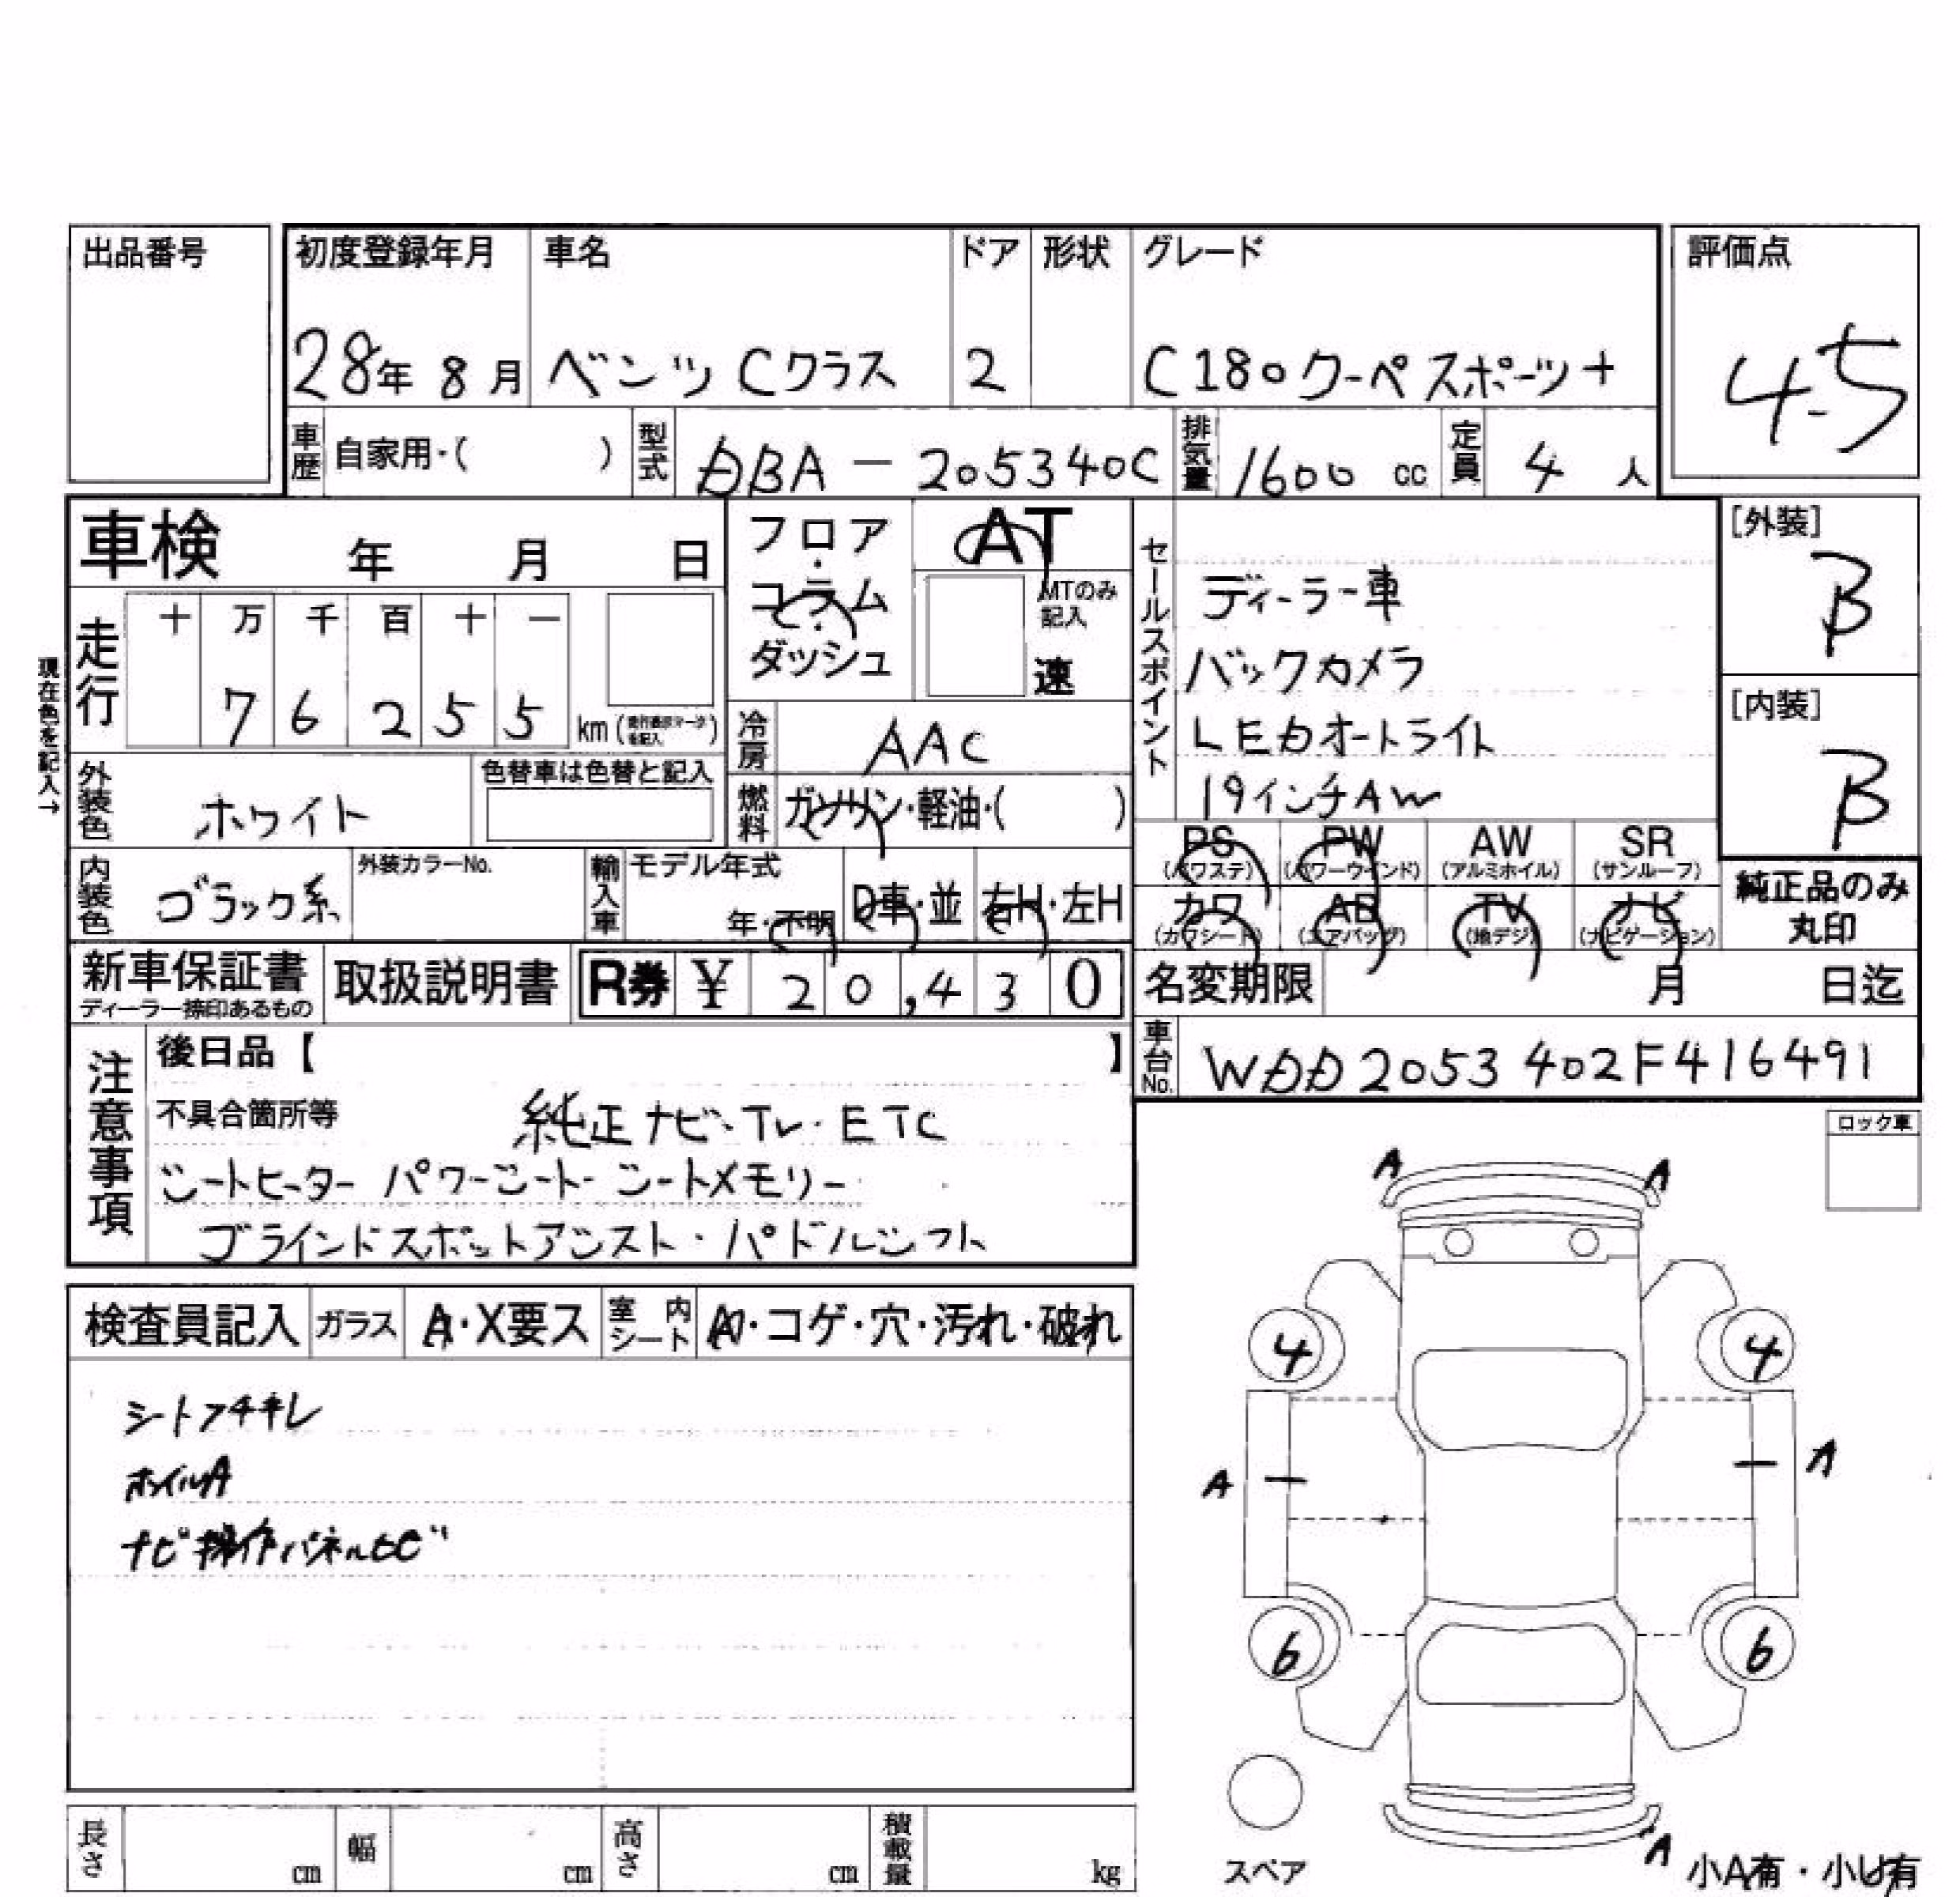 出品番号
初度登録年月 車名 ドア 形状 グレード 評価点
28年 8月 ベンツ Cクラス 2 C180クーペスポーツ+ 4.5
車歴 自家用・( ) 型式 DBA-205340C 排気量 1600 cc 定員 4 人
車検 年 月 日
フロア・コラム・ダッシュ
AT
MTのみ記入
速
セールスポイント
ディーラー車
バックカメラ
LEDオートライト
19インチAW
[外装]
B
[内装]
B
現在色を記入→
走行 十 万 千 百 十 一
7 6 2 5 5 km
冷房 AAC
外装色 ホワイト 色替車は色替と記入
燃料 ガソリン・軽油・( )
内装色 ブラック系 外装カラーNo.
輸入車 モデル年式 年・不明 D車・並 右H・左H
PS (パワステ) PW (パワーウインド) AW (アルミホイル) SR (サンルーフ)
カワ (カワシート) AB (エアバッグ) TV (地デジ) ナビ (ナビゲーション)
純正品のみ
丸印
新車保証書 ディーラー捺印あるもの 取扱説明書 R券 ¥ 20,430
名変期限 月 日迄
車台No. WDD2053402F416491
注意事項
後日品【 】
不具合箇所等 純正ナビ・TV・ETC
シートヒーター パワーシート・シートメモリー
ブラインドスポットアシスト・パドルシフト
ロック車
検査員記入 ガラス A・X要ス 室内シート A・コゲ・穴・汚れ・破れ
シートフチキレ
ホイルA
ナビ操作パネルヒビ
A A
4 4
A A
6 6
スペア
A
小A有・小U有
長さ cm 幅 cm 高さ cm 積載量 kg